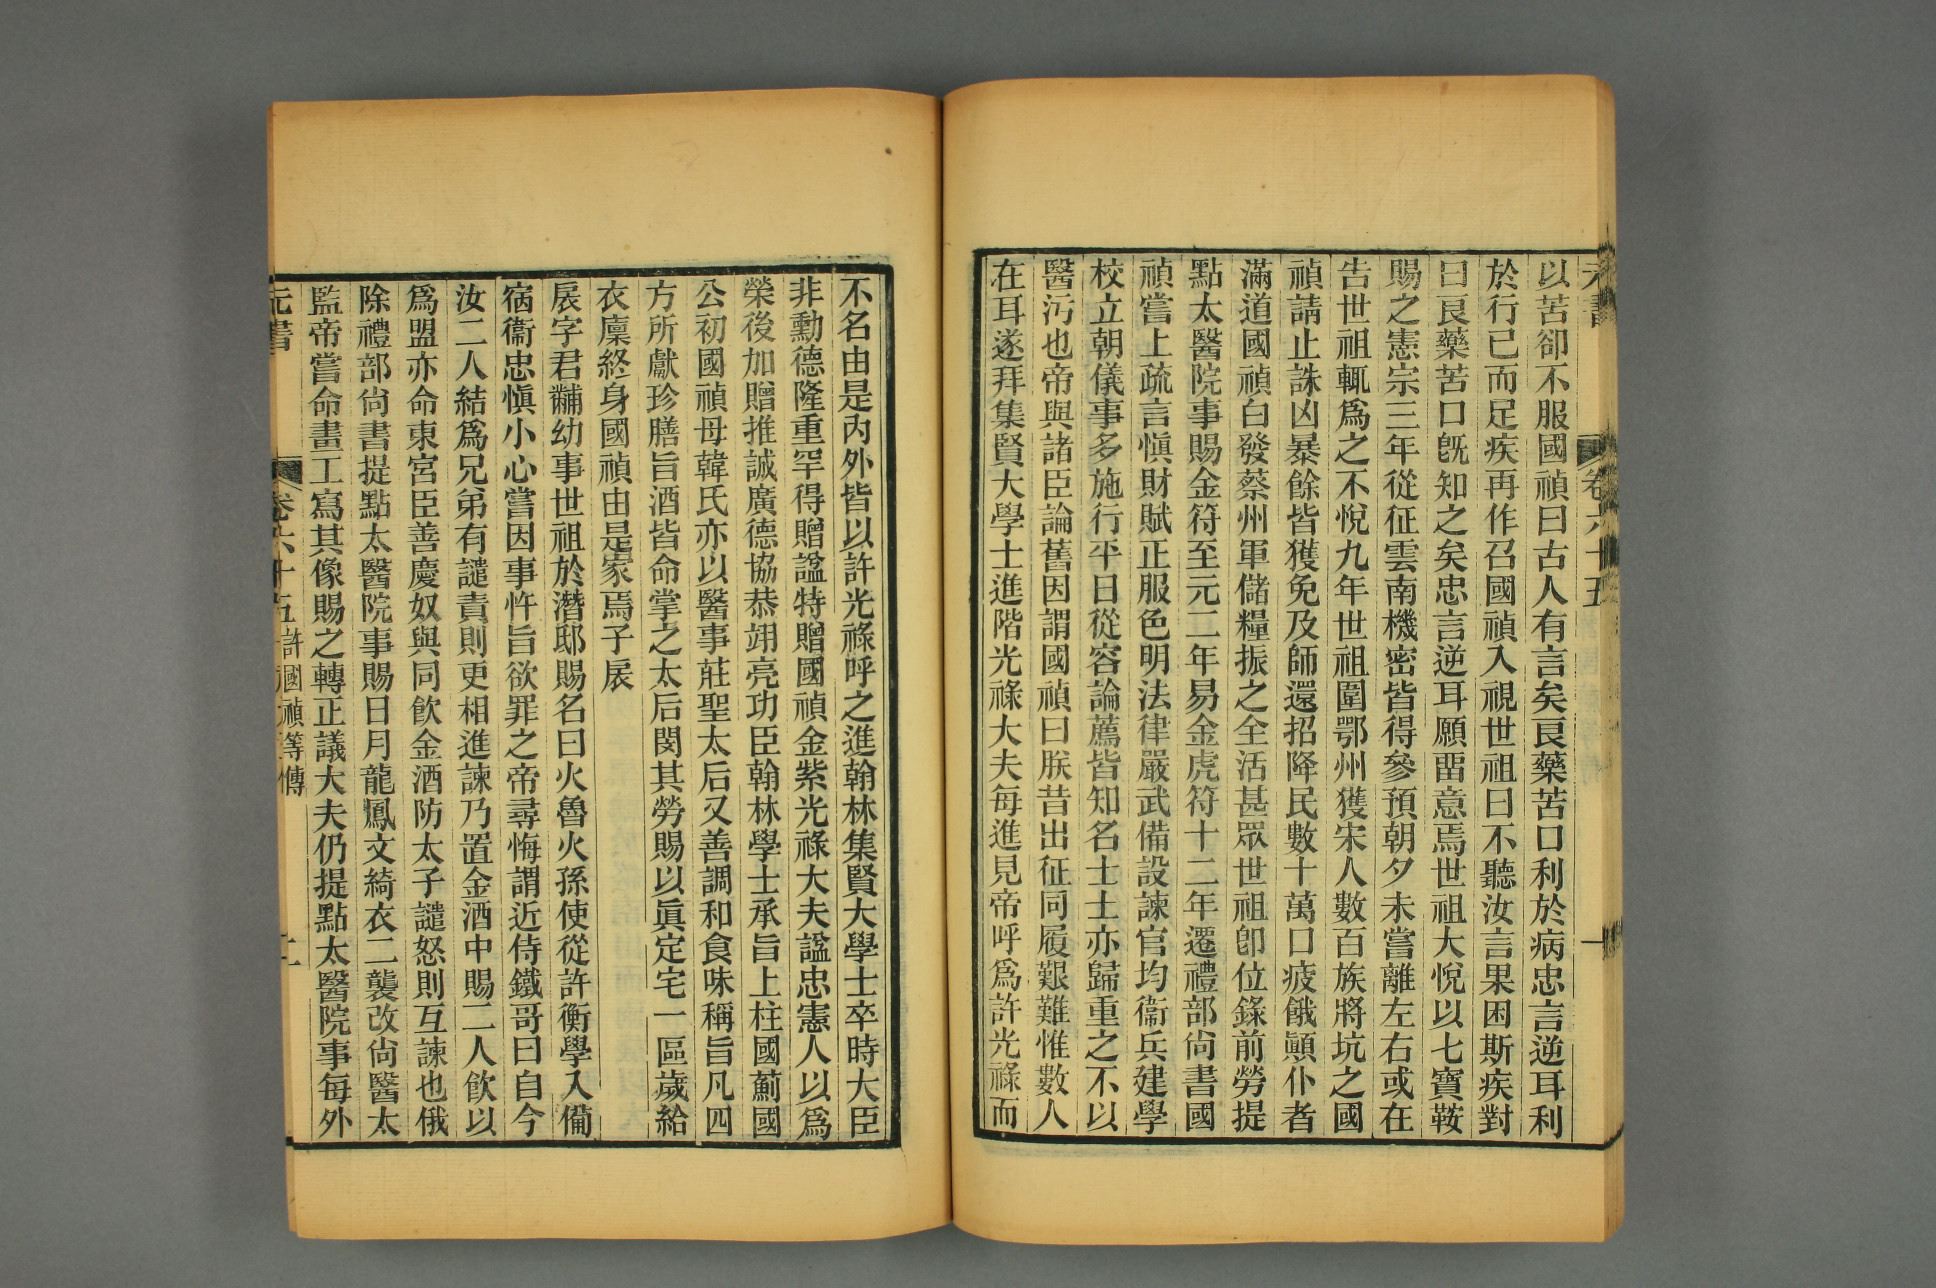 元書 卷六十五 一
以苦卻不服國禎曰古人有言矣良藥苦口利於病忠言逆耳利
於行已而足疾再作召國禎入視世祖曰不聽汝言果困斯疾對
曰良藥苦口旣知之矣忠言逆耳願畱意焉世祖大悅以七寶鞍
賜之憲宗三年從征雲南機密皆得參預朝夕未嘗離左右或在
告世祖輒爲之不悅九年世祖圍鄂州獲宋人數百族將坑之國
禎請止誅凶暴餘皆獲免及師還招降民數十萬口疲餓顚仆者
滿道國禎白發蔡州軍儲糧振之全活甚眾世祖卽位錄前勞提
點太醫院事賜金符至元二年易金虎符十二年遷禮部尙書國
禎嘗上疏言愼財賦正服色明法律嚴武備設諫官均衞兵建學
校立朝儀事多施行平日從容論薦皆知名士士亦歸重之不以
醫污也帝與諸臣論舊因謂國禎曰朕昔出征同履艱難惟數人
在耳遂拜集賢大學士進階光祿大夫每進見帝呼爲許光祿而
不名由是內外皆以許光祿呼之進翰林集賢大學士卒時大臣
非勳德隆重罕得贈諡特贈國禎金紫光祿大夫諡忠憲人以爲
榮後加贈推誠廣德協恭翊亮功臣翰林學士承旨上柱國薊國
公初國禎母韓氏亦以醫事莊聖太后又善調和食味稱旨凡四
方所獻珍膳旨酒皆命掌之太后閔其勞賜以眞定宅一區歲給
衣廩終身國禎由是家焉子扆
扆字君黼幼事世祖於潛邸賜名曰火魯火孫使從許衡學入備
宿衞忠愼小心嘗因事忤旨欲罪之帝尋悔謂近侍鐵哥曰自今
汝二人結爲兄弟有譴責則更相進諫乃置金酒中賜二人飮以
爲盟亦命東宮臣善慶奴與同飮金酒防太子譴怒則互諫也俄
除禮部尙書提點太醫院事賜日月龍鳳文綺衣二襲改尙醫太
監帝嘗命畫工寫其像賜之轉正議大夫仍提點太醫院事每外
元書 卷六十五 許國禎等傳 二